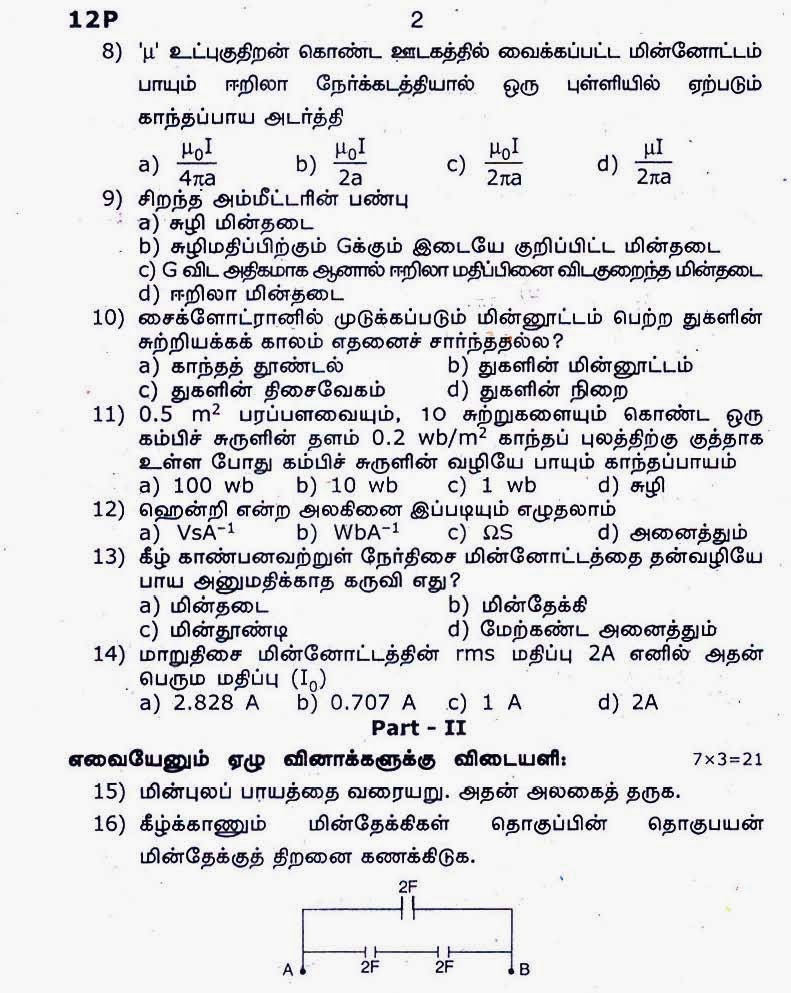 12P 2
8) 'μ' உட்புகுதிறன் கொண்ட ஊடகத்தில் வைக்கப்பட்ட மின்னோட்டம்
பாயும் ஈறிலா நேர்க்கடத்தியால் ஒரு புள்ளியில் ஏற்படும்
காந்தப்பாய அடர்த்தி
a) μ₀I/4πa b) μ₀I/2a c) μ₀I/2πa d) μI/2πa
9) சிறந்த அம்மீட்டரின் பண்பு
a) சுழி மின்தடை
b) சுழிமதிப்பிற்கும் Gக்கும் இடையே குறிப்பிட்ட மின்தடை
c) G விட அதிகமாக ஆனால் ஈறிலா மதிப்பினை விடகுறைந்த மின்தடை
d) ஈறிலா மின்தடை
10) சைக்ளோட்ரானில் முடுக்கப்படும் மின்னூட்டம் பெற்ற துகளின்
சுற்றியக்கக் காலம் எதனைச் சார்ந்ததல்ல?
a) காந்தத் தூண்டல் b) துகளின் மின்னூட்டம்
c) துகளின் திசைவேகம் d) துகளின் நிறை
11) 0.5 m² பரப்பளவையும், 10 சுற்றுகளையும் கொண்ட ஒரு
கம்பிச் சுருளின் தளம் 0.2 wb/m² காந்தப் புலத்திற்கு குத்தாக
உள்ள போது கம்பிச் சுருளின் வழியே பாயும் காந்தப்பாயம்
a) 100 wb b) 10 wb c) 1 wb d) சுழி
12) ஹென்றி என்ற அலகினை இப்படியும் எழுதலாம்
a) VsA⁻¹ b) WbA⁻¹ c) ΩS d) அனைத்தும்
13) கீழ் காண்பனவற்றுள் நேர்திசை மின்னோட்டத்தை தன்வழியே
பாய அனுமதிக்காத கருவி எது?
a) மின்தடை b) மின்தேக்கி
c) மின்தூண்டி d) மேற்கண்ட அனைத்தும்
14) மாறுதிசை மின்னோட்டத்தின் rms மதிப்பு 2A எனில் அதன்
பெரும மதிப்பு (I₀)
a) 2.828 A b) 0.707 A c) 1 A d) 2A
Part - II
எவையேனும் ஏழு வினாக்களுக்கு விடையளி: 7×3=21
15) மின்புலப் பாயத்தை வரையறு. அதன் அலகைத் தருக.
16) கீழ்க்காணும் மின்தேக்கிகள் தொகுப்பின் தொகுபயன்
மின்தேக்குத் திறனை கணக்கிடுக.
2F
A 2F 2F B